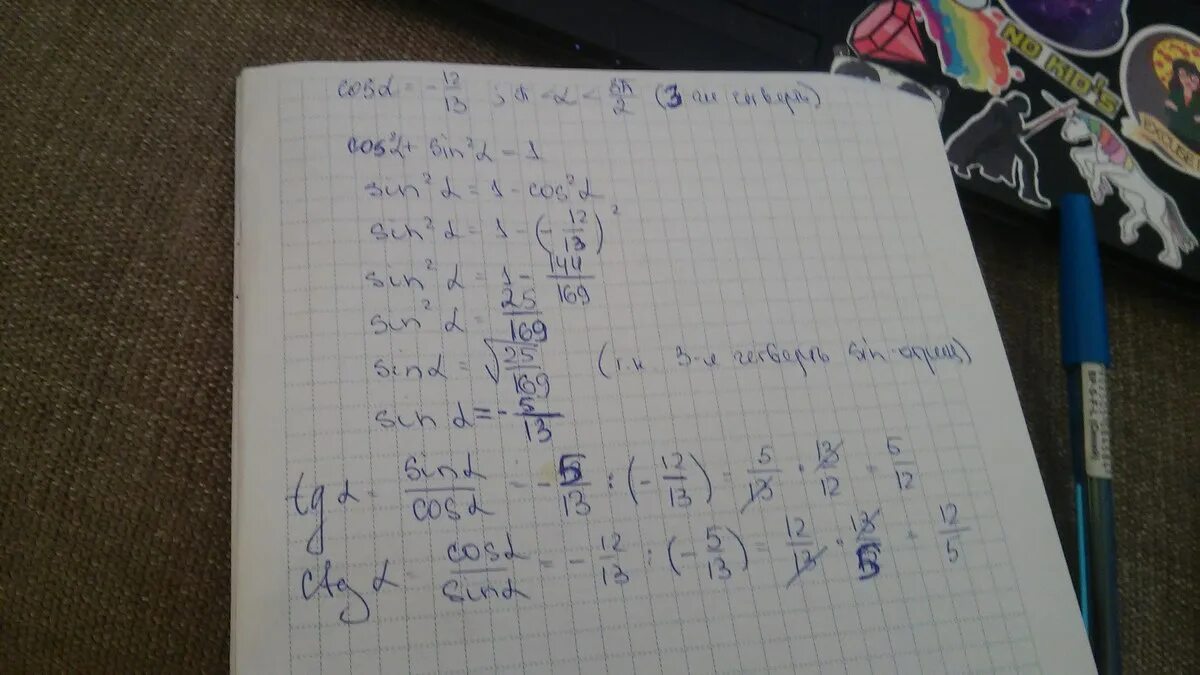 cosα = -12/13 ; π < α < 3π/2 (3-ги четверть)
cos²α + sin²α = 1
sin²α = 1 - cos²α
sin²α = 1 - (-12/13)²
sin²α = 1 - 144/169
sin²α = 25/169
sinα = √25/169 (т.к 3-я четверть sin-отриц)
sin α = -5/13
tg α = sinα/cosα = -5/13 : (-12/13) = 5/13 · 13/12 = 5/12
ctg α = cosα/sinα = -12/13 : (-5/13) = 12/13 · 13/5 = 12/5
NO KID'S